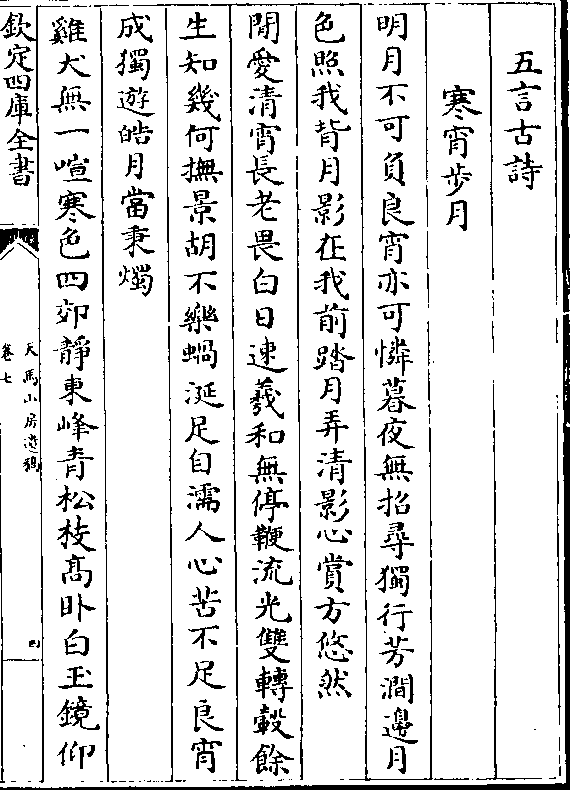 五言古詩
寒宵步月
明月不可負良宵亦可憐暮夜無招尋獨行芳澗邊月
色照我背月影在我前踏月弄清影心賞方悠然
閒愛清宵長老畏白日速羲和無停鞭流光雙轉轂餘
生知幾何撫景胡不樂蝸涎足自濡人心苦不足良宵
成獨遊皓月當秉燭
雞犬無一喧寒色四郊靜東峰青松枝髙卧白玉鏡仰
欽定四庫全書
天馬山房遺稿
卷七
四